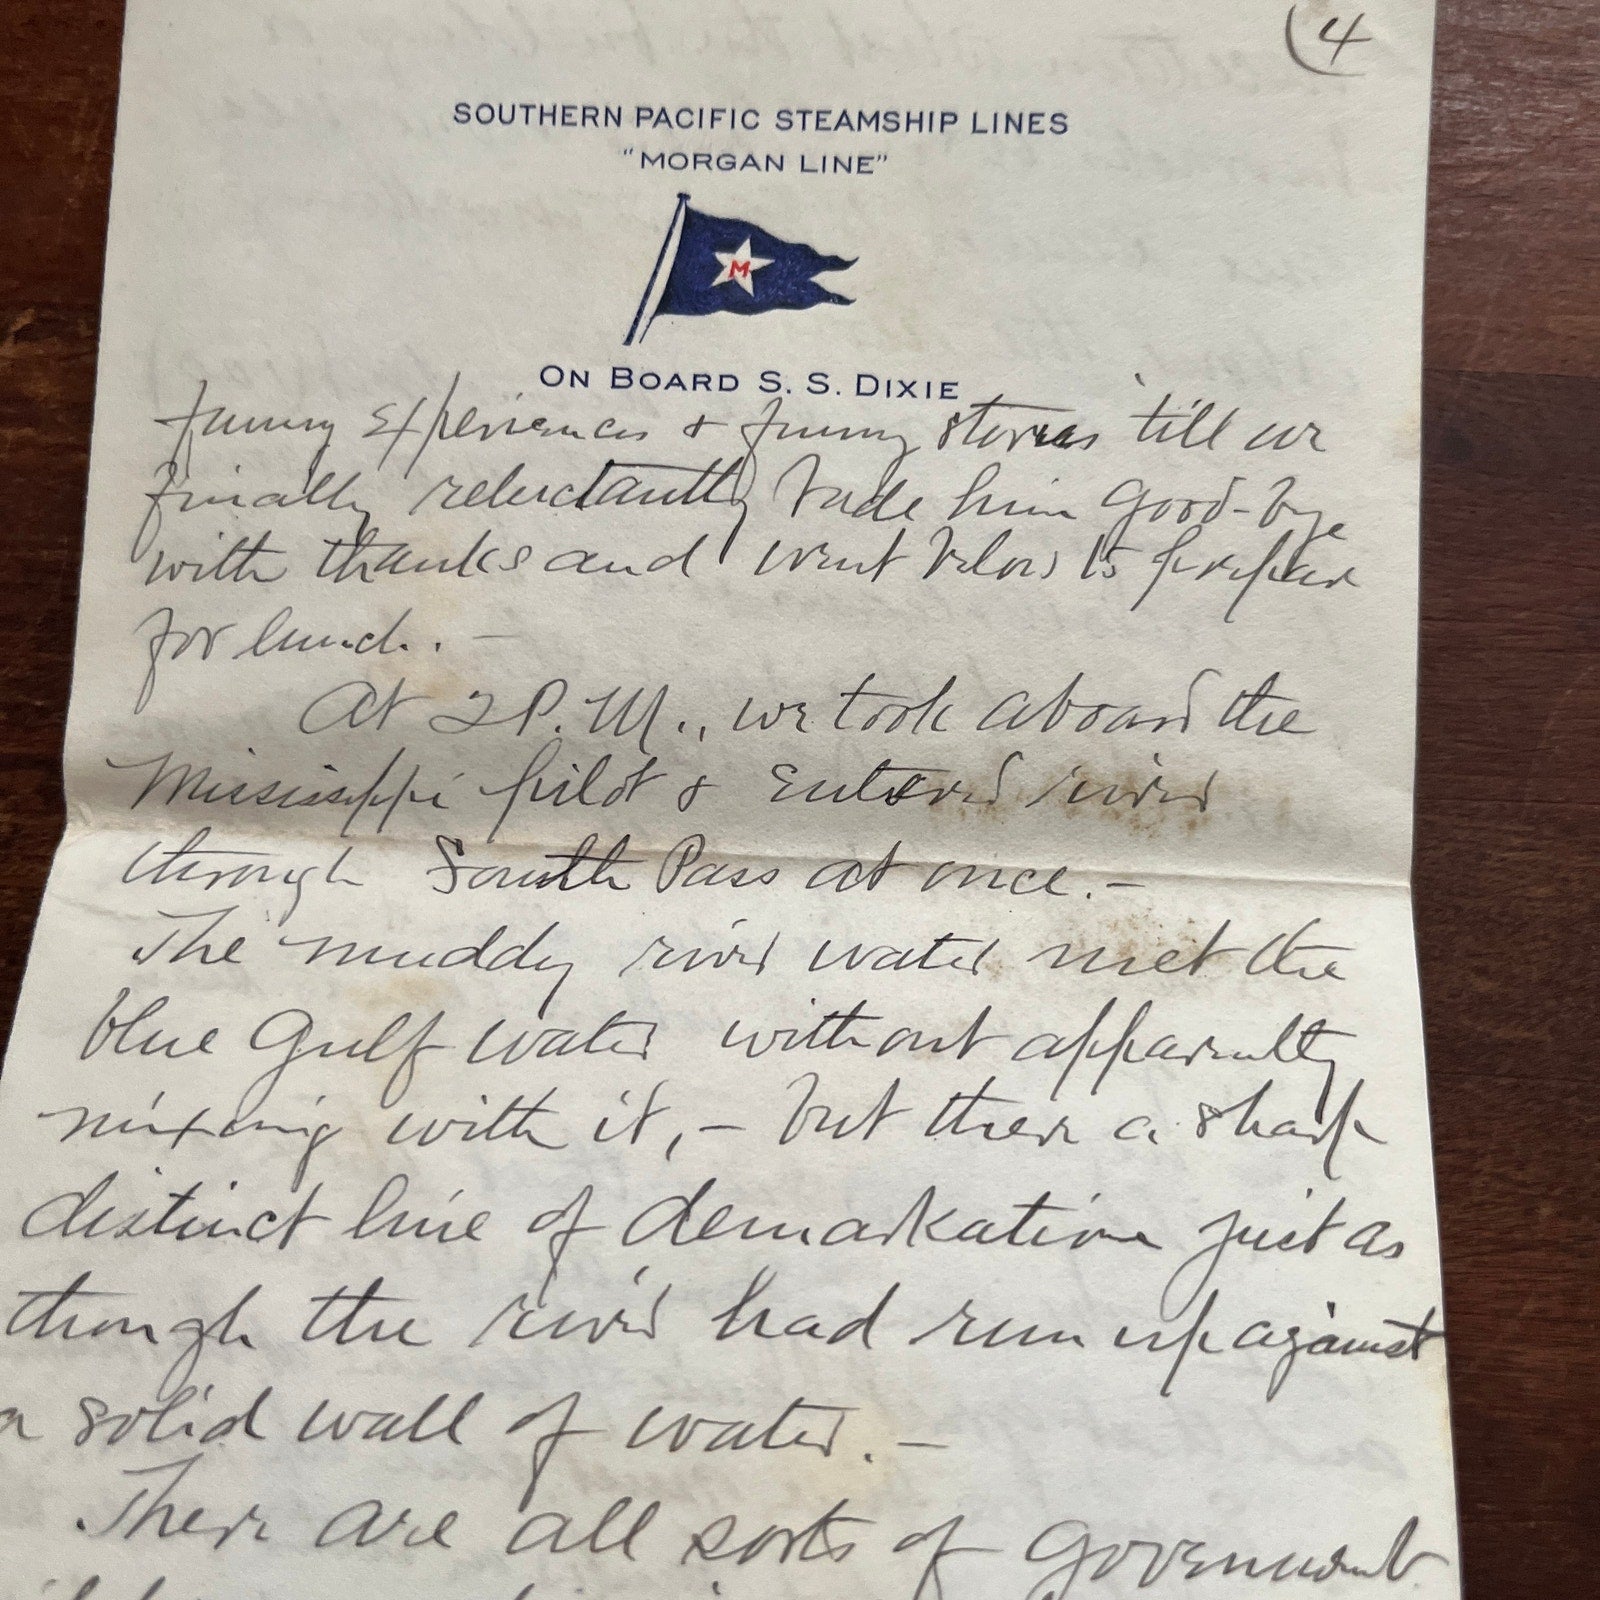 (4
SOUTHERN PACIFIC STEAMSHIP LINES
"MORGAN LINE"
M
ON BOARD S. S. DIXIE
funny experiences & funny stories till we
finally reluctantly bade him good-bye
with thanks and went below to prepare
for lunch. -
At 2 P.M., we took aboard the
Mississippi pilot & entered river
through South Pass at once. -
The muddy river water met the
blue Gulf water without apparently
mixing with it, - but there a sharp
distinct line of demarkation just as
though the river had run up against
a solid wall of water. -
There are all sorts of Government